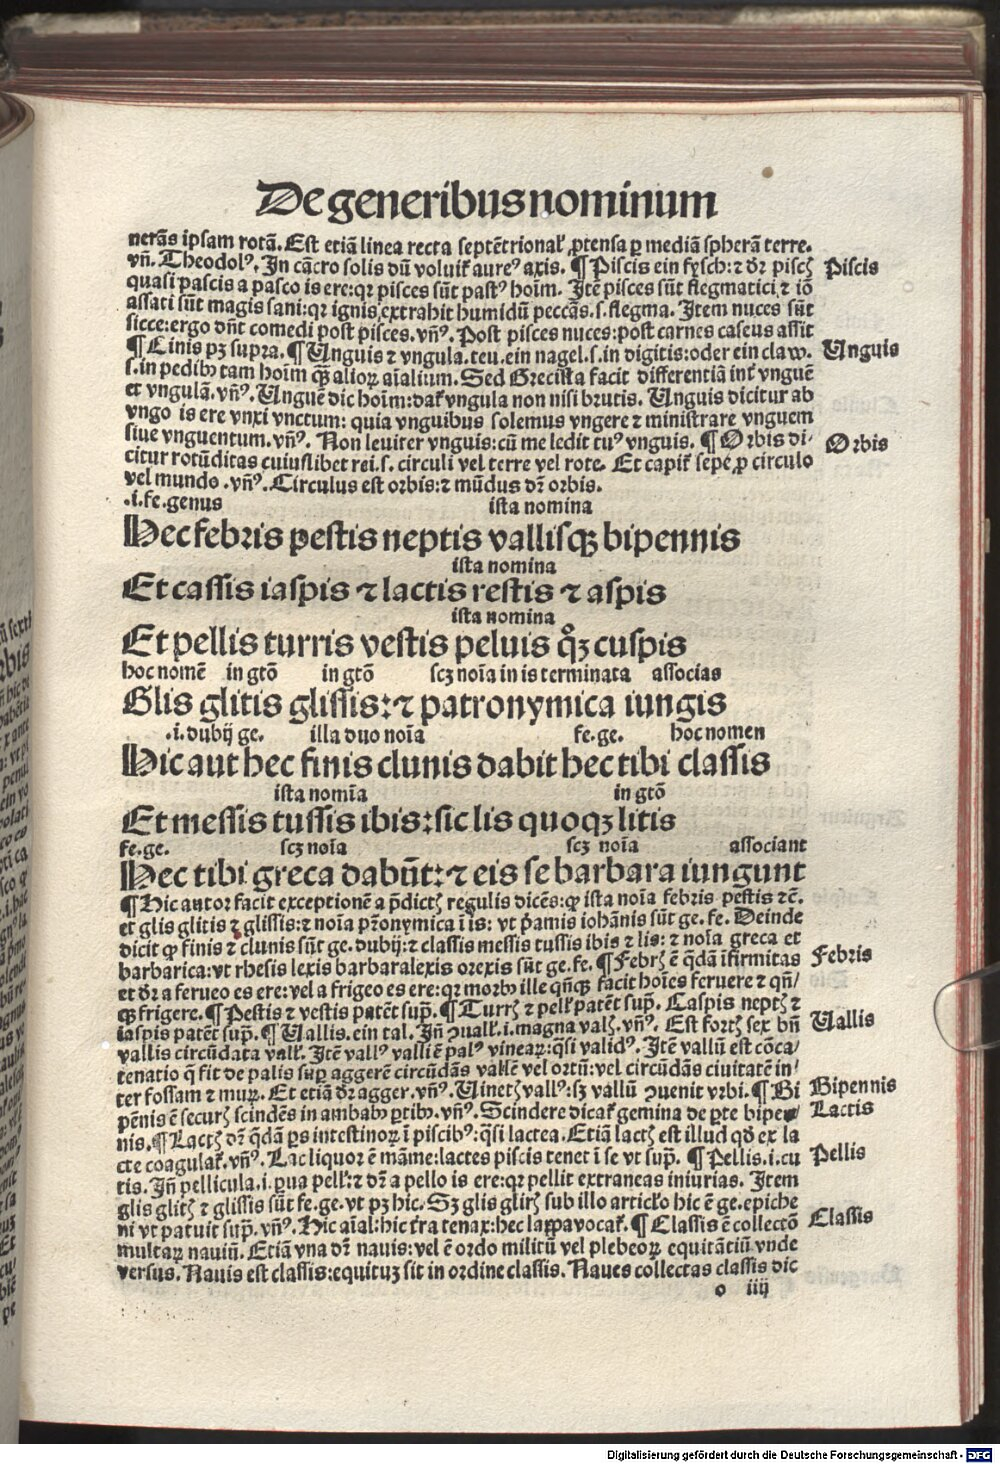 De generibus nominum
nerãs ipsam rotã. Est etiã linea recta septẽtrionaľ ꝓtensa ꝑ mediã spherã terre.
vñ. Theodolꝰ. In cãcro solis dũ voluiť aureꝰ axis. ¶ Piscis ein fysch: ⁊ dr̃ piscꝭ
Piscis
quasi pascis a pasco is ere: qꝛ pisces sũt pastꝰ hoĩm. Itẽ pisces sũt flegmatici, ⁊ iõ
assati sũt magis sani: qꝛ ignis extrahit humidũ peccãs. s. flegma. Item nuces sũt
sicce: ergo dñt comedi post pisces. vñꝰ. Post pisces nuces: post carnes caseus assit
¶ Cinis pꝫ supra. ¶ Unguis ⁊ vngula. teu. ein nagel. s. in digitis: oder ein claw.
Unguis
s. in pedibꝰ tam hoĩm qꝫ̃ alioꝝ aĩalium. Sed Grecista facit differentiã inť vnguẽ
et vngulã. vñꝰ. Unguẽ dic hoĩm: dať vngula non nisi brutis. Unguis dicitur ab
vngo is ere vnxi vnctum: quia vnguibus solemus vngere ⁊ ministrare vnguem
siue vnguentum. vñꝰ. Non leuiter vnguis: cũ me ledit tuꝰ vnguis. ¶ Orbis di⸗
Orbis
citur rotũditas cuiuslibet rei. s. circuli vel terre vel rote. Et capiť sepe ꝓ circulo
vel mundo. vñꝰ. Circulus est orbis: ⁊ mũdus dr̃ orbis.
.i. fe. genus ista nomina
Hec febris pestis neptis vallisqꝫ bipennis
ista nomina
Et cassis iaspis ⁊ lactis restis ⁊ aspis
ista nomina
Et pellis turris vestis peluis qͦꝫ cuspis
hoc nomẽ in gtõ in gtõ scꝫ noĩa in is terminata associas
Glis glitis glissis: ⁊ patronymica iungis
.i. dubij ge. illa duo noĩa fe. ge. hoc nomen
Hic aut hec finis clunis dabit hec tibi classis
ista nomĩa in gtõ
Et messis tussis ibis: sic lis quoqꝫ litis
fe. ge. scꝫ noĩa scꝫ noĩa associant
Hec tibi greca dabũt: ⁊ eis se barbara iungunt
¶ Hic autor facit exceptionẽ a p̃dictꝭ regulis dicẽs: ꝙ ista noĩa febris pestis ⁊c̃.
et glis glitis ⁊ glissis: ⁊ noĩa pr̃onymica ĩ is: vt p̃amis iohãnis sũt ge. fe. Deinde
dicit ꝙ finis ⁊ clunis sũt ge. dubij: ⁊ classis messis tussis ibis ⁊ lis: ⁊ noĩa greca et
barbarica: vt rhesis lexis barbaralexis orexis sũt ge. fe. ¶ Febrꝭ ẽ q̃dã ĩfirmitas
Febris
et dr̃ a ferueo es ere: vel a frigeo es ere: qꝛ morbꝰ ille qñqꝫ facit hoĩes feruere ⁊ qñ⸗
qꝫ frigere. ¶ Pestis ⁊ vestis patẽt sup̃. ¶ Turrꝭ ⁊ pelľ patẽt sup̃. Caspis neptꝭ ⁊
iaspis patẽt sup̃. ¶ Uallis. ein tal. Iñ ꝯualľ. i. magna valꝭ. vñꝰ. Est fortꝭ sex bñ
Uallis
vallis circũdata valľ. Itẽ vallꝰ valli ẽ palꝰ vineaꝝ: q̃si validꝰ. Itẽ vallũ est cõca⸗
tenatio q̃ fit de palis suꝑ aggerẽ circũdãs vallẽ vel ortũ: vel circũdãs ciuitatẽ in⸗
ter fossam ⁊ muꝝ. Et etiã dr̃ agger. vñꝰ. Uinetꝭ vallꝰ: sꝫ vallũ ꝯuenit vrbi. ¶ Bi
Bipennis
pẽnis ẽ securꝭ scindẽs in ambabꝰ ꝑtibꝰ. vñꝰ. Scindere dicať gemina de ꝑte bipen⸗
Lactis
nis. ¶ Lactꝭ dr̃ q̃dã ꝑs intestinoꝝ ĩ piscibꝰ: q̃si lactea. Etiã lactꝭ est illud qd̃ ex la
cte coagulať. vñꝰ. Lac liquor ẽ mãme: lactes piscis tenet ĩ se vt sup̃. ¶ Pellis. i. cu
Pellis
tis. Iñ pellicula. i. ꝑua pelľ: ⁊ dr̃ a pello is ere: qꝛ pellit extraneas iniurias. Item
glis glirꝭ ⁊ glissis sũt fe. ge. vt pꝫ hic. Sꝫ glis glirꝭ sub illo articľo hic ẽ ge. epiche
ni vt patuit sup̃. vñꝰ. Hic aĩal: hic tr̃a tenax: hec lappa vocať. ¶ Classis ẽ collectõ
Classis
multaꝝ nauiũ. Etiã vna dr̃ nauis: vel ẽ ordo militũ vel plebeoꝝ equitãtiũ vnde
versus. Nauis est classis: equituꝫ sit in ordine classis. Naues collectas classis dic
o iiij
Digitalisierung gefördert durch die Deutsche Forschungsgemeinschaft - DFG